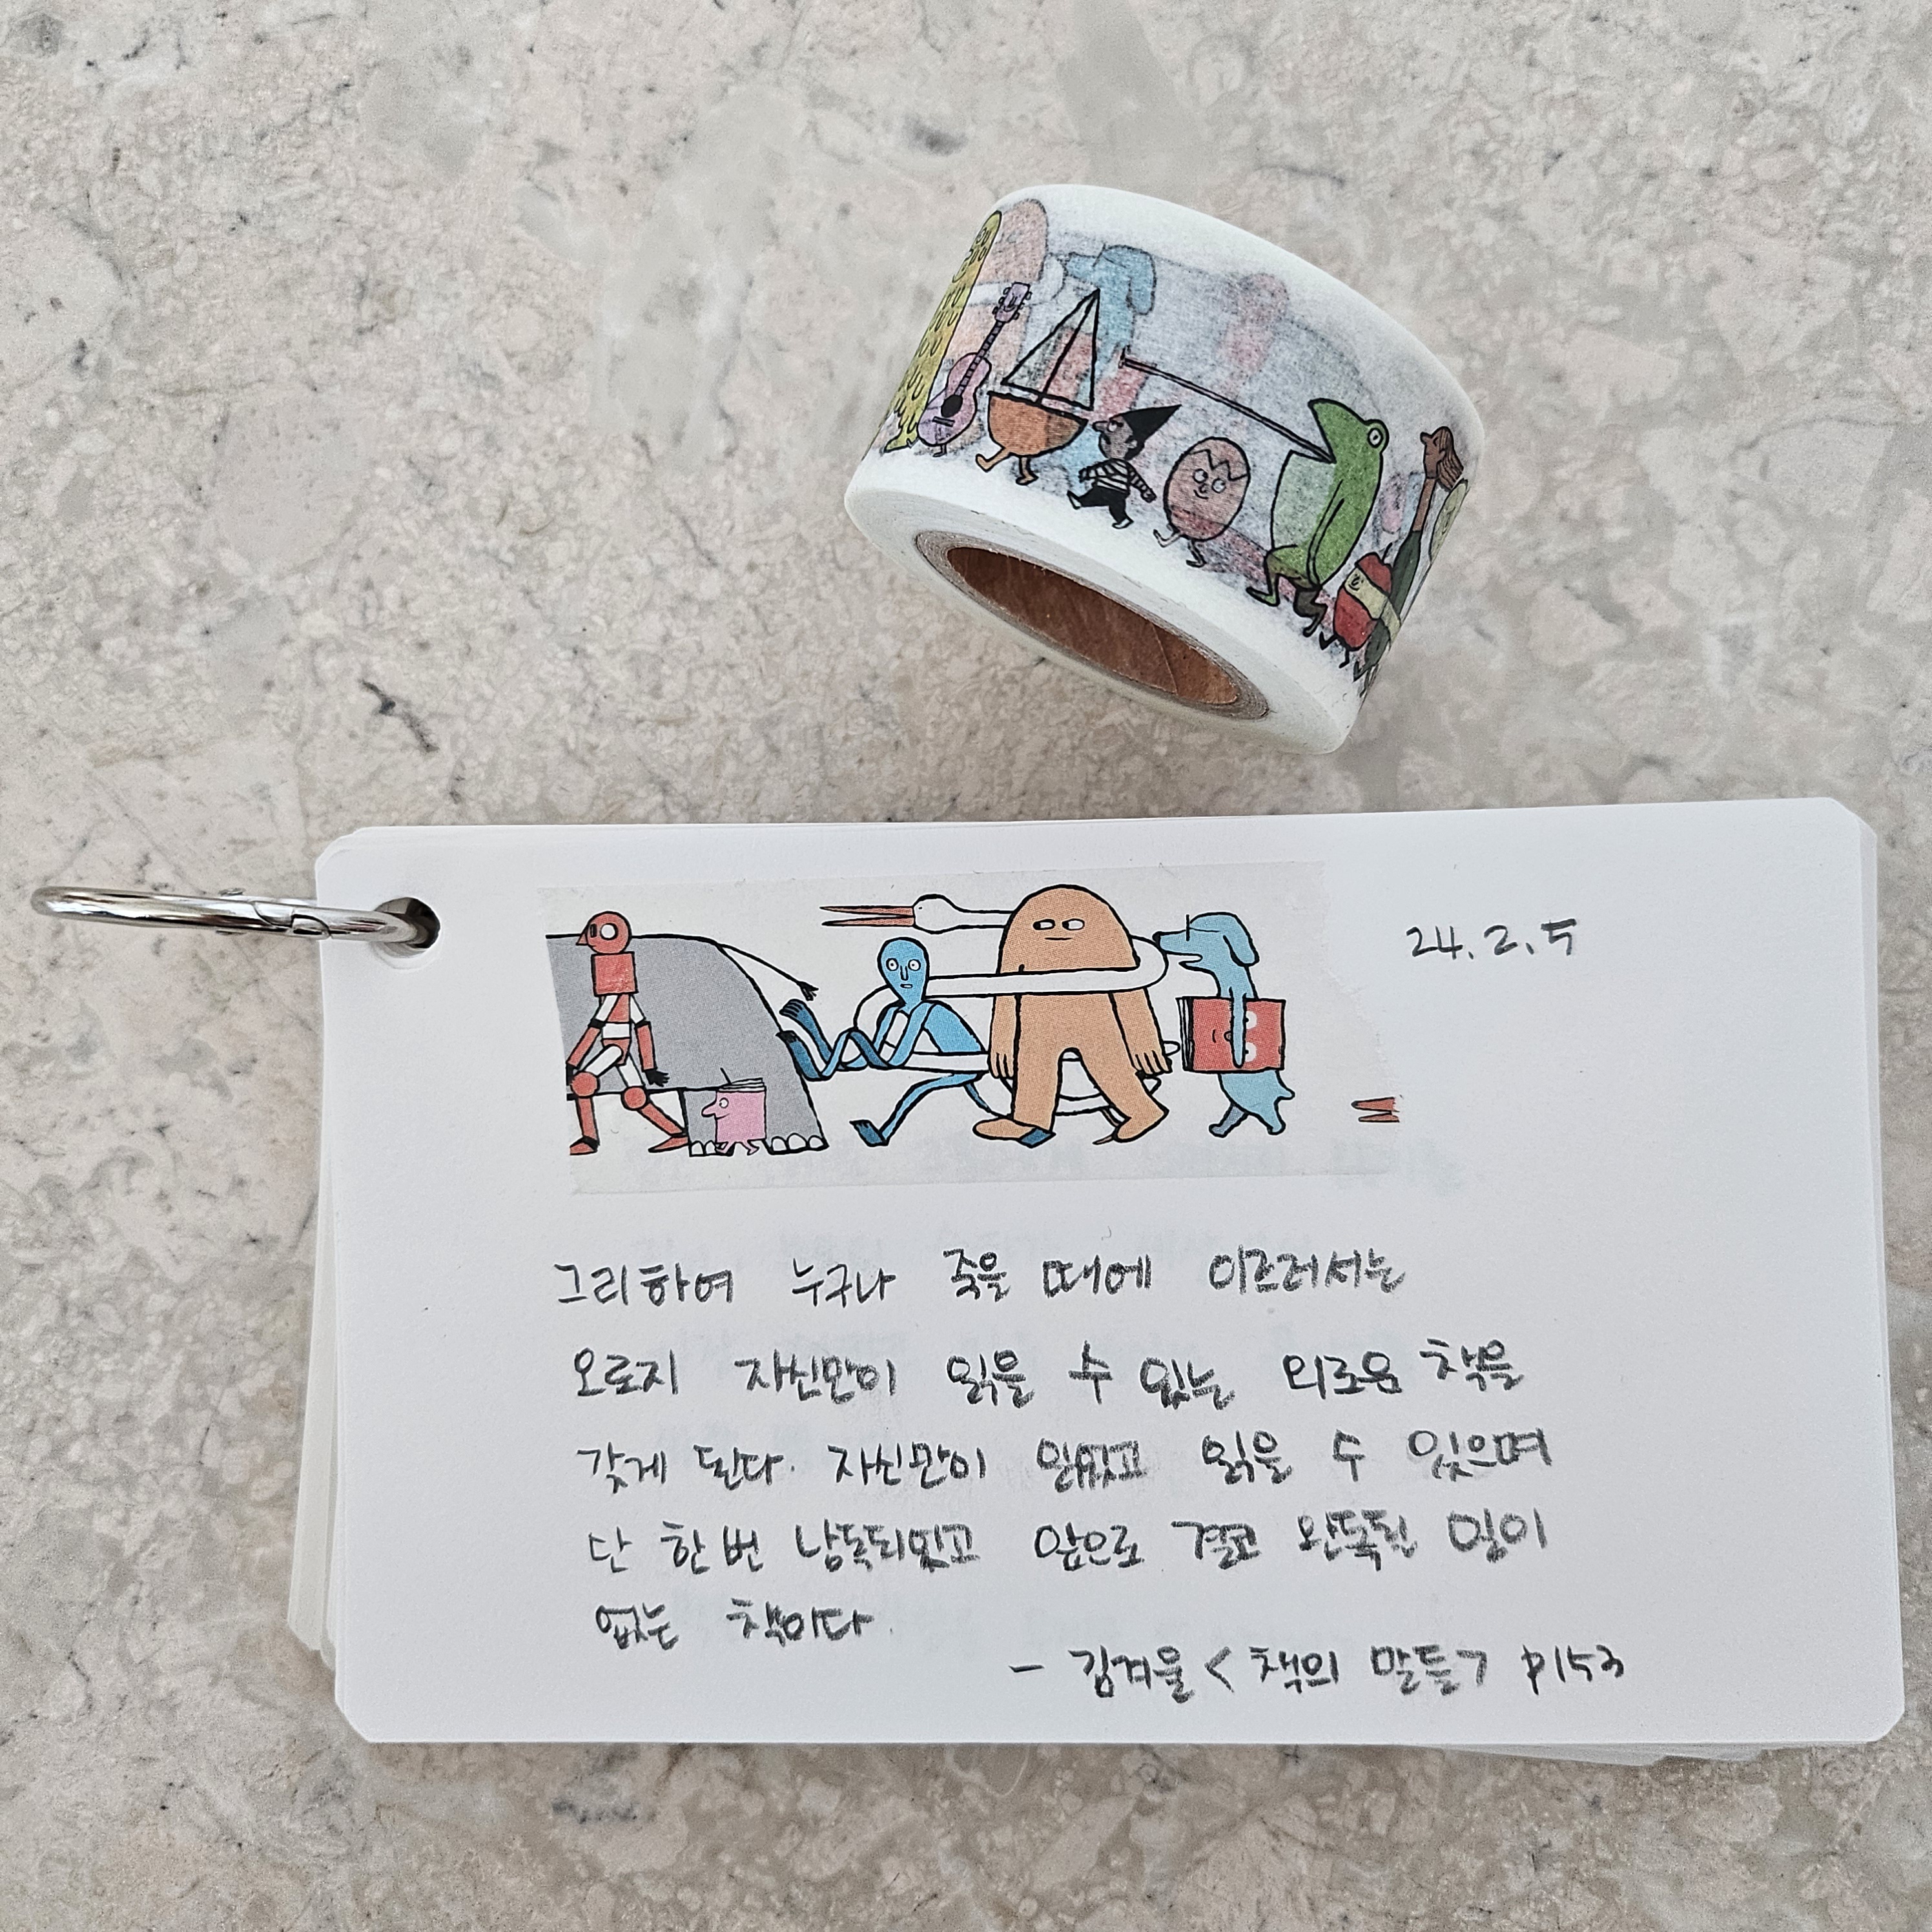 24.2.5
그리하여 누구나 죽을 때에 이르러서는
오로지 자신만이 읽을 수 있는 외로운 책을
갖게 된다. 자신만이 읽었고 읽을 수 있으며
단 한번 낭독되었고 앞으로 결코 완독될 일이
없는 책이다.
- 김겨울 <책의 말들> p153